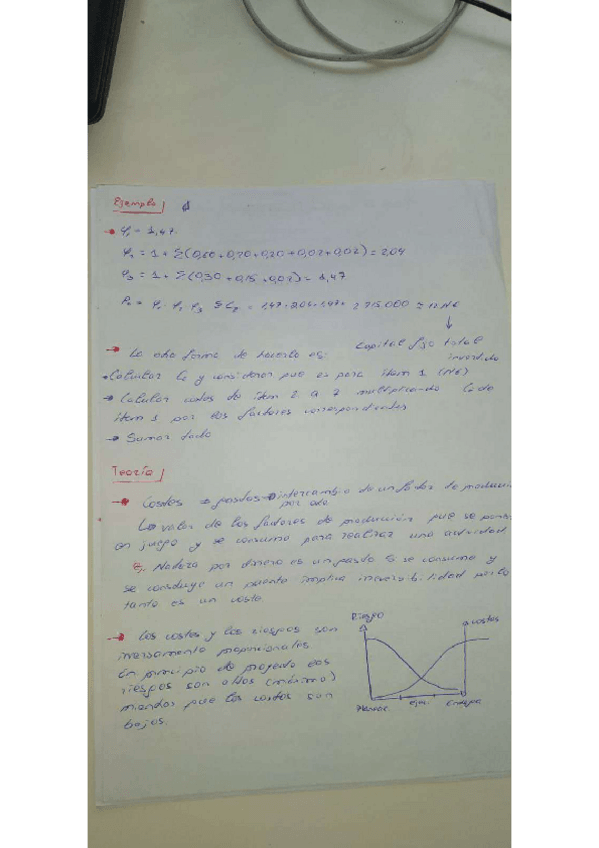 Ejemplo
→ φ₁ = 1,47
φ₂ = 1 + Σ(0,60 + 0,20 + 0,20 + 0,02 + 0,02) = 2,04
φ₃ = 1 + Σ(0,30 + 0,15 + 0,02) = 1,47
= φ₁ φ₂ φ₃ Σ = 1,47 · 2,04 · 1,47 · 2 715.000 ≈ 12 M€
↓
→ La otra forma de hacerlo es: Capital fijo total
invertido
Calcular y considerar que es para ítem 1 (M€)
→ Calcular costos de ítem 2 a 7 multiplicando de
ítem 1 por los factores correspondientes
→ Sumar todo
Teoría
→ Costos → gastos → intercambio de un factor de
por otro
valor de los factores de producción que se
en juego y se consume para realizar una actividad
Ej. Madera por dinero es un gasto se consume y
se construye un puente implica irreversibilidad por lo
tanto es un costo.
→ Los costos y los riesgos son
inversamente proporcionales
En principio de proyecto los
riesgos son altos (máximo)
mientras que los costos son
bajos.
Riesgo
costos
Ejec.
Entrega